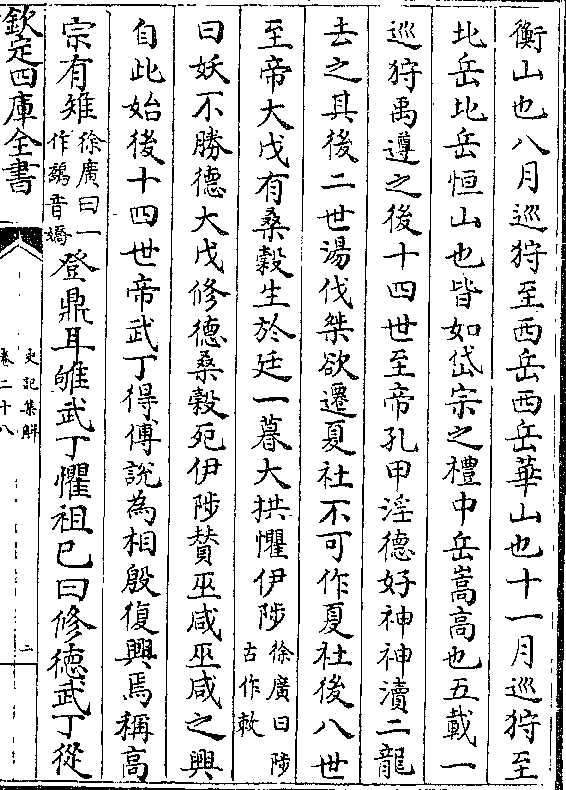 衡山也八月巡狩至西岳西岳華山也十一月巡狩至
北岳北岳恒山也皆如岱宗之禮中岳嵩高也五載一
巡狩禹遵之後十四世至帝孔甲淫德好神神瀆二龍
去之其後二世湯伐桀欲遷夏社不可作夏社後八世
至帝大戊有桑穀生於廷一暮大拱懼伊陟徐廣曰陟
古作敕
曰妖不勝德大戊修德桑穀死伊陟賛巫咸巫咸之興
自此始後十四世帝武丁得傅說為相殷復興焉稱髙
宗有雉徐廣曰一
作鷂音嬌登鼎耳雊武丁懼祖己曰修德武丁從
欽定四庫全書
史記集解
卷二十八
二